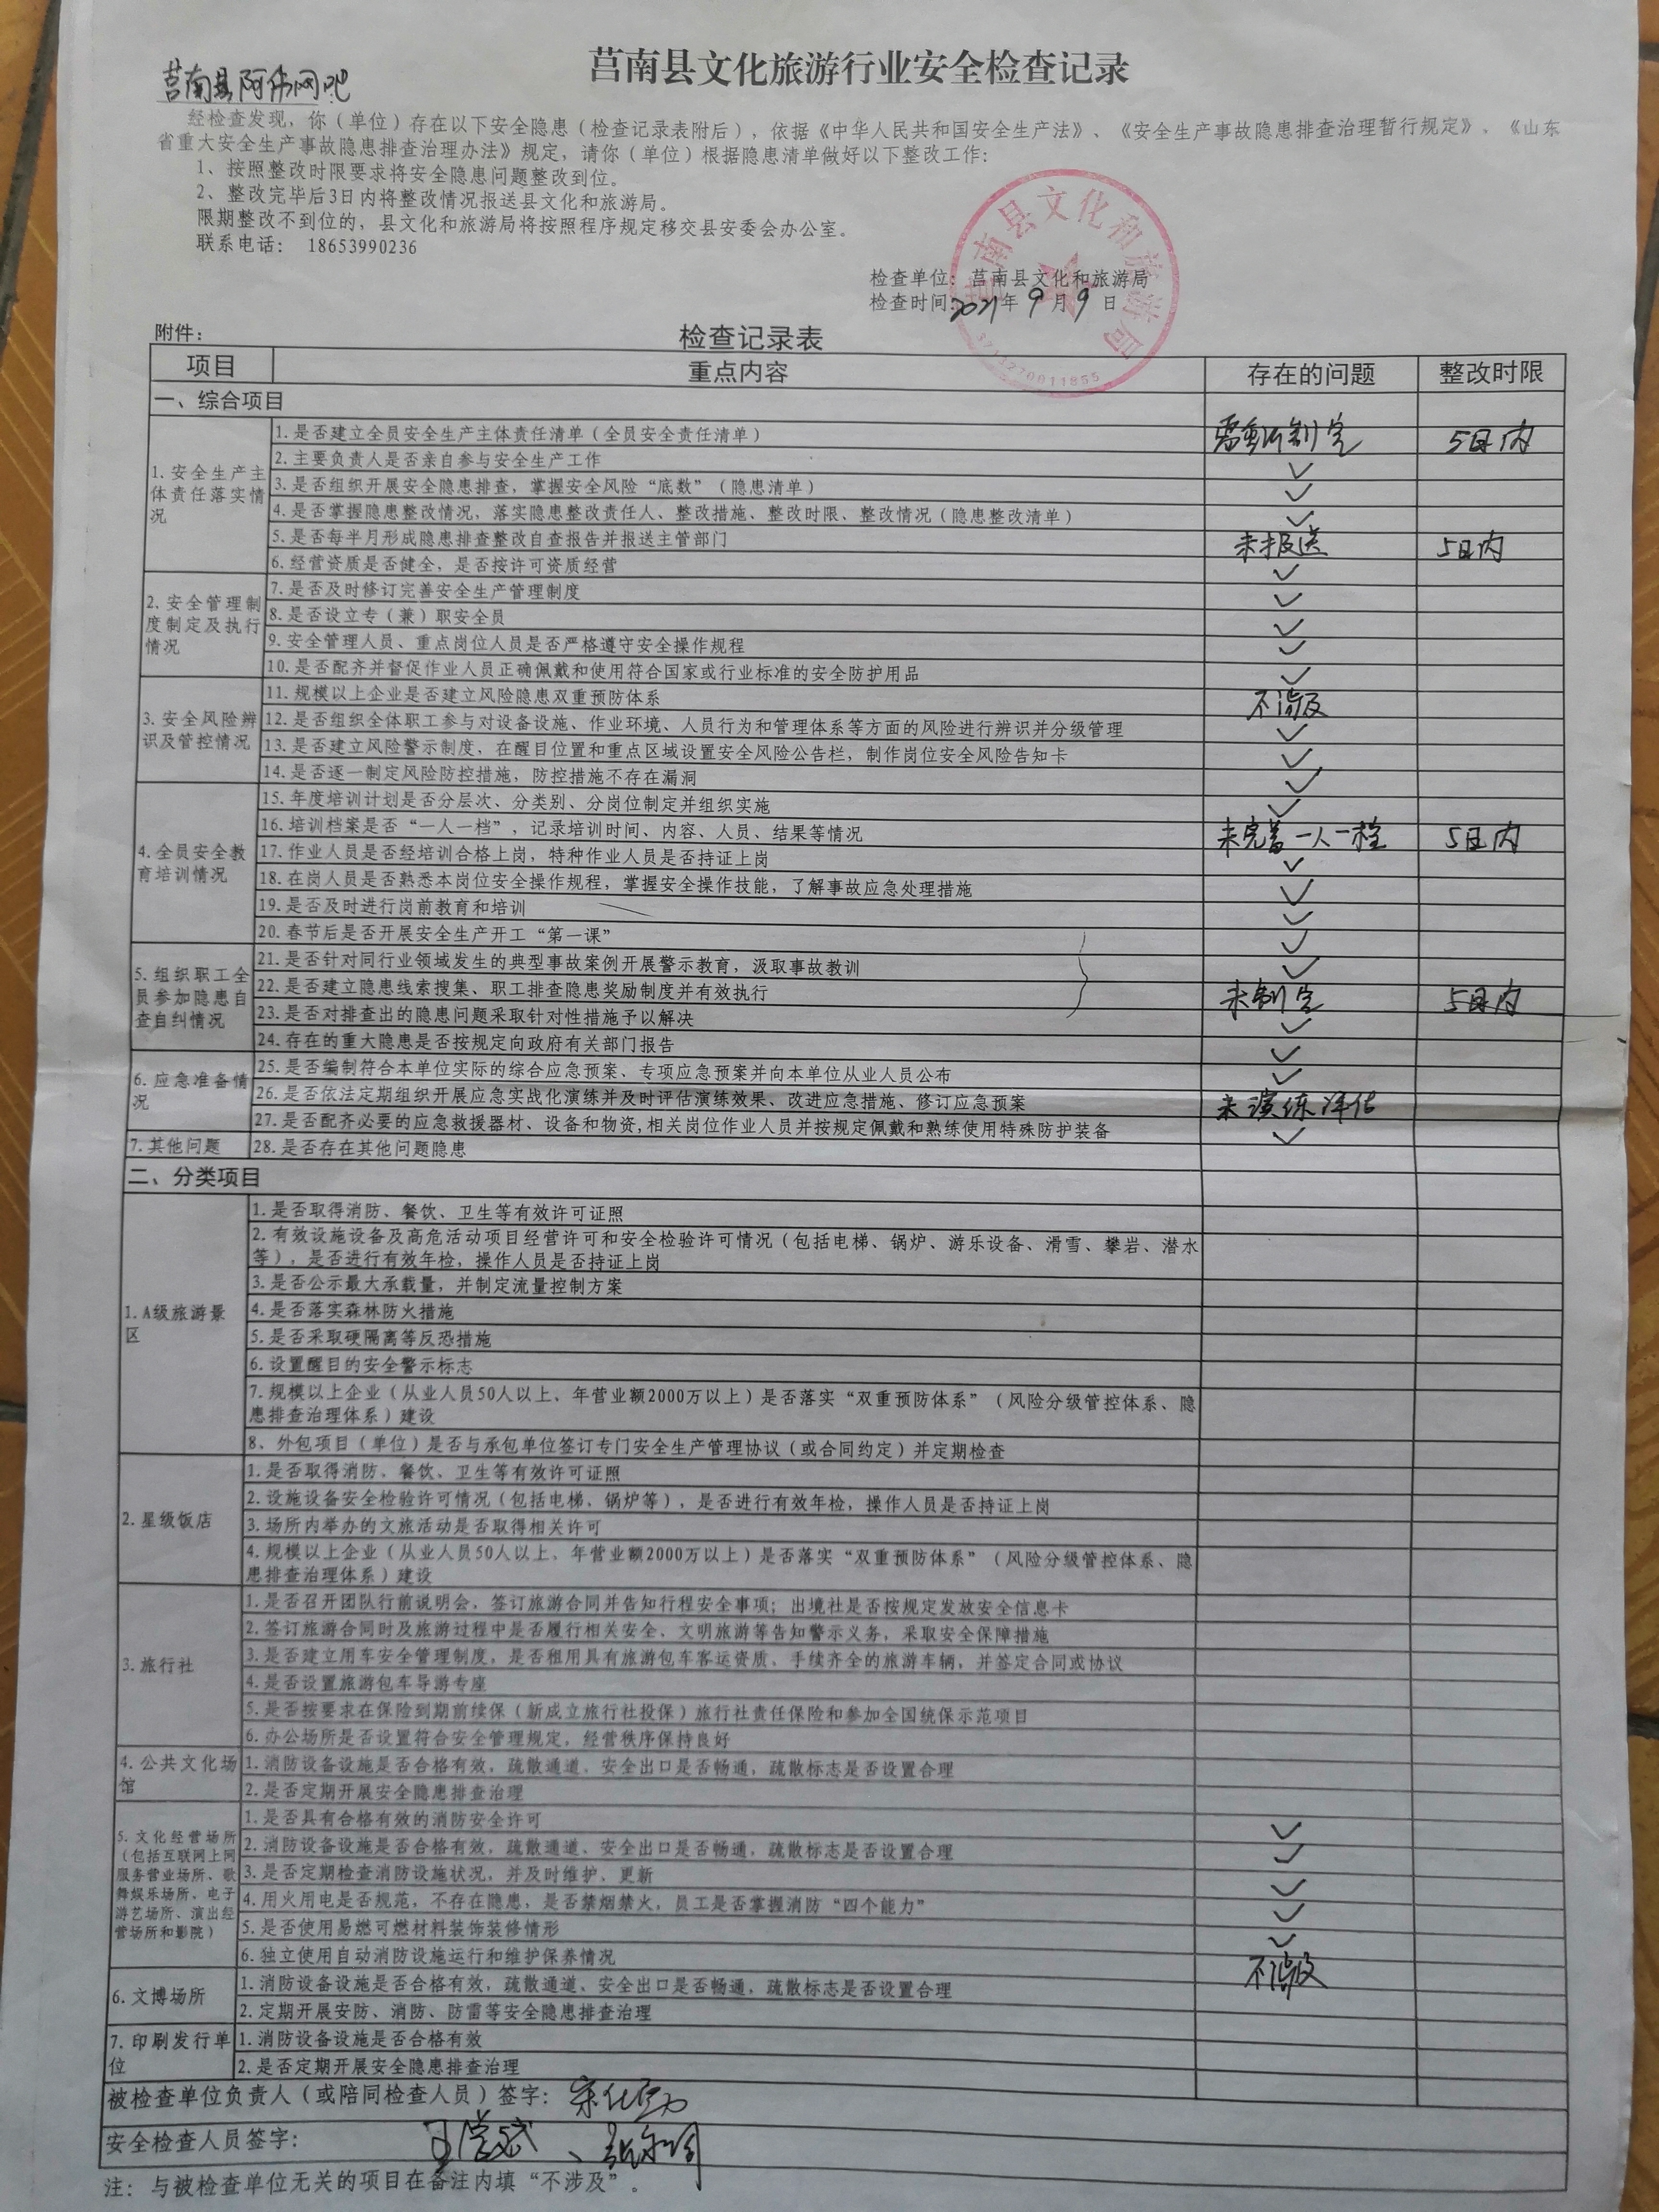 莒南县文化旅游行业安全检查记录
莒南县阿伟网吧
经检查发现，你（单位）存在以下安全隐患（检查记录表附后），依据《中华人民共和国安全生产法》、《安全生产事故隐患排查治理暂行规定》，《山东
省重大安全生产事故隐患排查治理办法》规定，请你（单位）根据隐患清单做好以下整改工作：
1、按照整改时限要求将安全隐患问题整改到位。
2、整改完毕后3日内将整改情况报送县文化和旅游局。
限期整改不到位的，县文化和旅游局将按照程序规定移交县安委会办公室。
联系电话： 18653990236
莒南县文化和旅游局
3713270011855
检查单位：莒南县文化和旅游局
检查时间：2021年9月9日
附件：
检查记录表
项目 重点内容 存在的问题 整改时限
一、综合项目
1.安全生产主
体责任落实情
况
1.是否建立全员安全生产主体责任清单（全员安全责任清单） 需重新制定 5日内
2.主要负责人是否亲自参与安全生产工作 ✓
3.是否组织开展安全隐患排查，掌握安全风险“底数”（隐患清单） ✓
4.是否掌握隐患整改情况，落实隐患整改责任人、整改措施、整改时限、整改情况（隐患整改清单） ✓
5.是否每半月形成隐患排查整改自查报告并报送主管部门 未报送 5日内
6.经营资质是否健全，是否按许可资质经营 ✓
2.安全管理制
度制定及执行
情况
7.是否及时修订完善安全生产管理制度 ✓
8.是否设立专（兼）职安全员 ✓
9.安全管理人员、重点岗位人员是否严格遵守安全操作规程 ✓
10.是否配齐并督促作业人员正确佩戴和使用符合国家或行业标准的安全防护用品 ✓
3.安全风险辨
识及管控情况
11.规模以上企业是否建立风险隐患双重预防体系 不涉及
12.是否组织全体职工参与对设备设施、作业环境、人员行为和管理体系等方面的风险进行辨识并分级管理 ✓
13.是否建立风险警示制度，在醒目位置和重点区域设置安全风险公告栏，制作岗位安全风险告知卡 ✓
14.是否逐一制定风险防控措施，防控措施不存在漏洞 ✓
4.全员安全教
育培训情况
15.年度培训计划是否分层次、分类别、分岗位制定并组织实施 ✓
16.培训档案是否“一人一档”，记录培训时间、内容、人员、结果等情况 未完善一人一档 5日内
17.作业人员是否经培训合格上岗，特种作业人员是否持证上岗 ✓
18.在岗人员是否熟悉本岗位安全操作规程，掌握安全操作技能，了解事故应急处理措施 ✓
19.是否及时进行岗前教育和培训 ✓
20.春节后是否开展安全生产开工“第一课” ✓
5.组织职工全
员参加隐患自
查自纠情况
21.是否针对同行业领域发生的典型事故案例开展警示教育，汲取事故教训 ✓
22.是否建立隐患线索搜集、职工排查隐患奖励制度并有效执行 未制定 5日内
23.是否对排查出的隐患问题采取针对性措施予以解决 ✓
24.存在的重大隐患是否按规定向政府有关部门报告 ✓
6.应急准备情
况
25.是否编制符合本单位实际的综合应急预案、专项应急预案并向本单位从业人员公布 ✓
26.是否依法定期组织开展应急实战化演练并及时评估演练效果、改进应急措施、修订应急预案 未演练评估
27.是否配齐必要的应急救援器材、设备和物资,相关岗位作业人员并按规定佩戴和熟练使用特殊防护装备 ✓
7.其他问题 28.是否存在其他问题隐患
二、分类项目
1.A级旅游景
区
1.是否取得消防、餐饮、卫生等有效许可证照
2.有效设施设备及高危活动项目经营许可和安全检验许可情况（包括电梯、锅炉、游乐设备、滑雪、攀岩、潜水
等），是否进行有效年检，操作人员是否持证上岗
3.是否公示最大承载量，并制定流量控制方案
4.是否落实森林防火措施
5.是否采取硬隔离等反恐措施
6.设置醒目的安全警示标志
7.规模以上企业（从业人员50人以上、年营业额2000万以上）是否落实“双重预防体系”（风险分级管控体系、隐
患排查治理体系）建设
8、外包项目（单位）是否与承包单位签订专门安全生产管理协议（或合同约定）并定期检查
2.星级饭店
1.是否取得消防、餐饮、卫生等有效许可证照
2.设施设备安全检验许可情况（包括电梯、锅炉等），是否进行有效年检，操作人员是否持证上岗
3.场所内举办的文旅活动是否取得相关许可
4.规模以上企业（从业人员50人以上、年营业额2000万以上）是否落实“双重预防体系”（风险分级管控体系、隐
患排查治理体系）建设
3.旅行社
1.是否召开团队行前说明会，签订旅游合同并告知行程安全事项；出境社是否按规定发放安全信息卡
2.签订旅游合同时及旅游过程中是否履行相关安全、文明旅游等告知警示义务，采取安全保障措施
3.是否建立用车安全管理制度，是否租用具有旅游包车客运资质、手续齐全的旅游车辆，并签定合同或协议
4.是否设置旅游包车导游专座
5.是否按要求在保险到期前续保（新成立旅行社投保）旅行社责任保险和参加全国统保示范项目
6.办公场所是否设置符合安全管理规定，经营秩序保持良好
4.公共文化场
馆
1.消防设备设施是否合格有效，疏散通道、安全出口是否畅通，疏散标志是否设置合理
2.是否定期开展安全隐患排查治理
5.文化经营场所
（包括互联网上网
服务营业场所、歌
舞娱乐场所、电子
游艺场所、演出经
营场所和影院）
1.是否具有合格有效的消防安全许可 ✓
2.消防设备设施是否合格有效，疏散通道、安全出口是否畅通，疏散标志是否设置合理 ✓
3.是否定期检查消防设施状况，并及时维护、更新 ✓
4.用火用电是否规范，不存在隐患，是否禁烟禁火，员工是否掌握消防“四个能力” ✓
5.是否使用易燃可燃材料装饰装修情形 ✓
6.独立使用自动消防设施运行和维护保养情况 不涉及
6.文博场所
1.消防设备设施是否合格有效，疏散通道、安全出口是否畅通，疏散标志是否设置合理
2.定期开展安防、消防、防雷等安全隐患排查治理
7.印刷发行单
位
1.消防设备设施是否合格有效
2.是否定期开展安全隐患排查治理
被检查单位负责人（或陪同检查人员）签字：
安全检查人员签字：
注：与被检查单位无关的项目在备注内填“不涉及”。